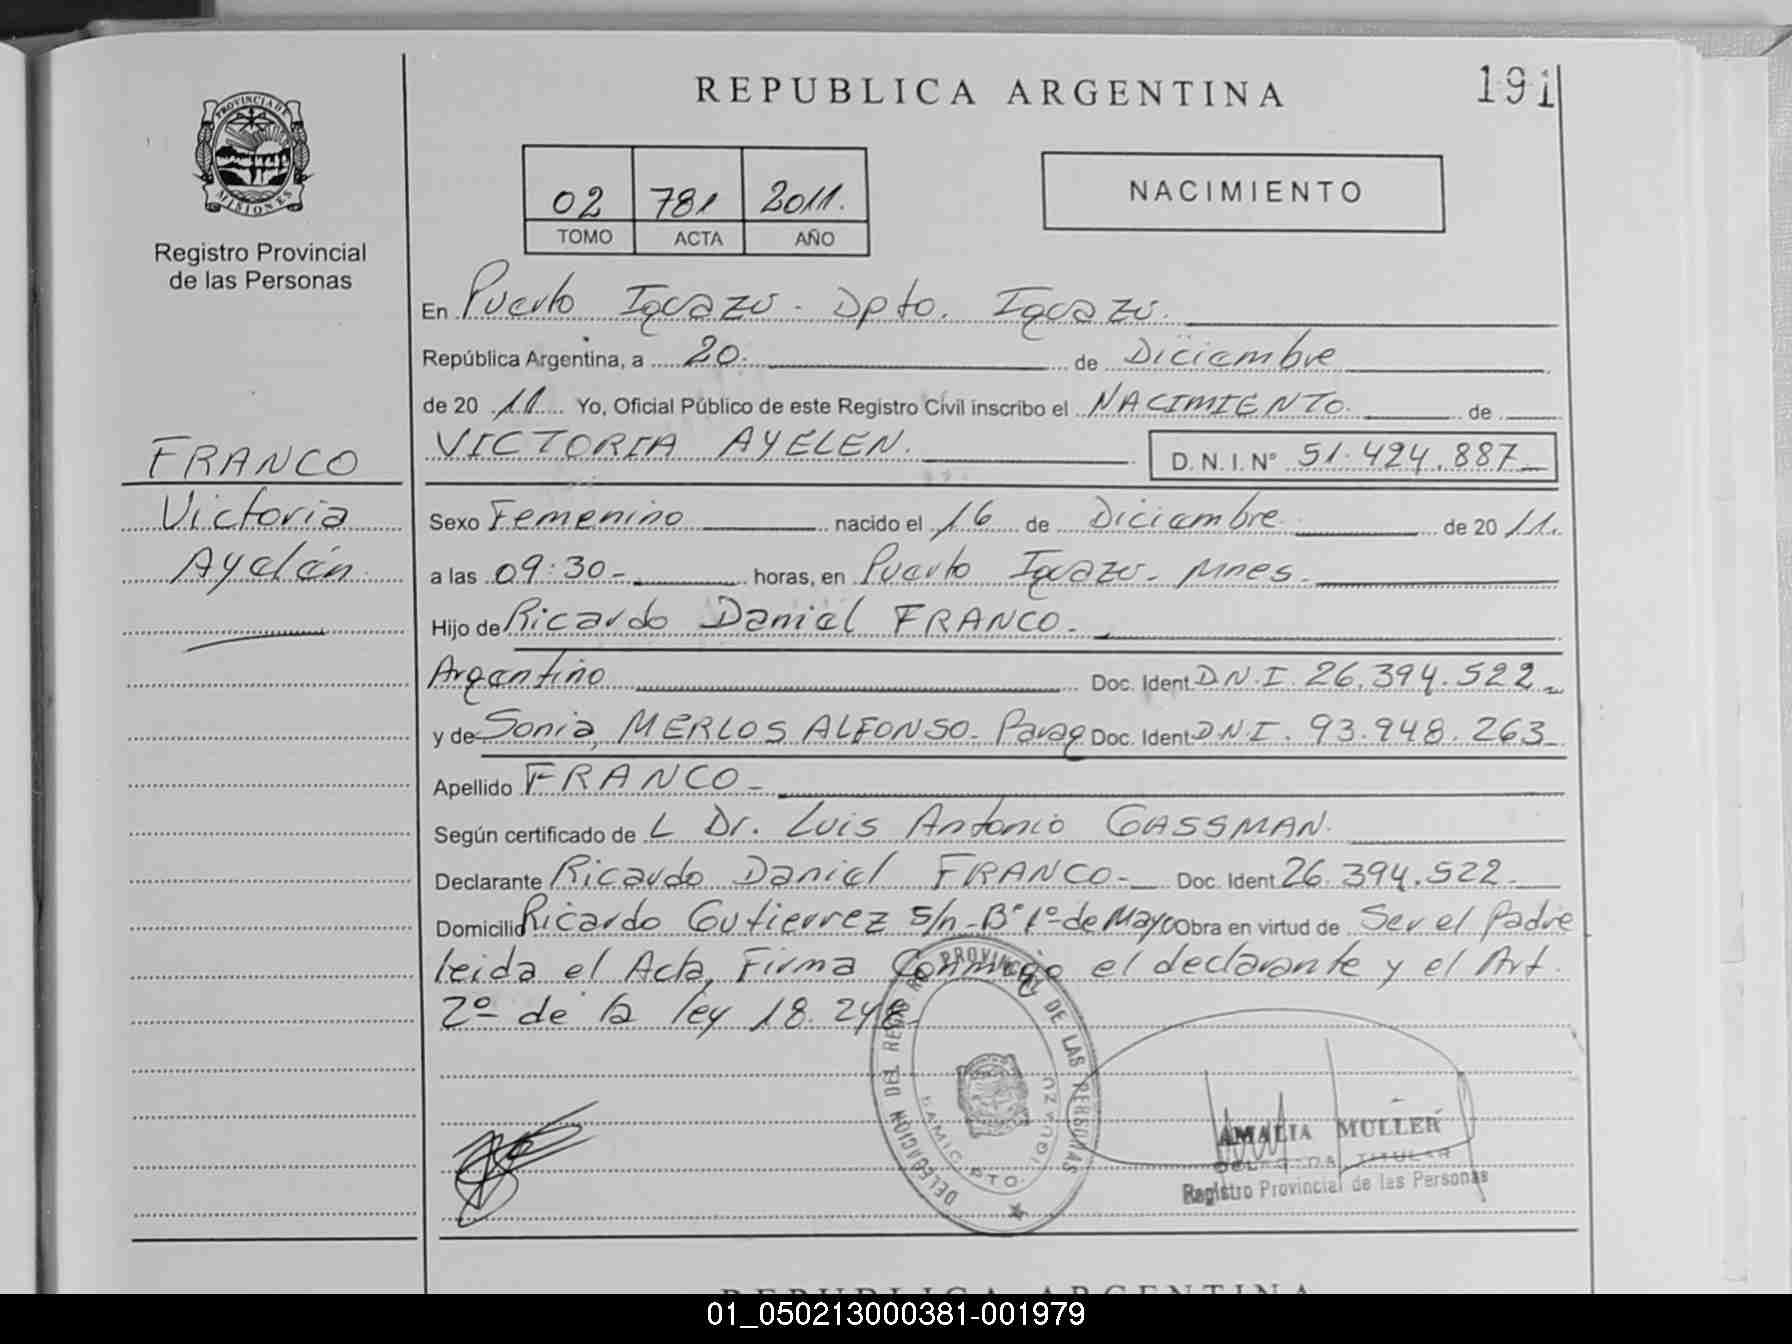 REPUBLICA ARGENTINA
191
PROVINCIA DE
MISIONES
Registro Provincial
de las Personas
02 781 2011.
TOMO ACTA AÑO
NACIMIENTO
En Puerto Iguazú - Dpto. Iguazú.
República Argentina, a 20. de Diciembre
de 20 11 Yo, Oficial Público de este Registro Civil inscribo el NACIMIENTO. de
VICTORIA AYELEN. D. N. I. N° 51.424.887
FRANCO
Victoria
Ayelén
Sexo Femenino nacido el 16 de Diciembre de 20 11.
a las 09:30- horas, en Puerto Iguazú - Mnes.
Hijo de Ricardo Daniel FRANCO-
Argentino Doc. Ident. D.N.I. 26.394.522
y de Sonia MERLOS ALFONSO- Parag Doc. Ident. D.N.I. 93.948.263
Apellido FRANCO-
Según certificado de L Dr. Luis Antonio GASSMAN.
Declarante Ricardo Daniel FRANCO- Doc. Ident 26.394.522.
Domicilio Ricardo Gutierrez s/n - B° 1º de Mayo Obra en virtud de Ser el Padre
leida el Acta, Firma Conmigo el declarante y el Art.
2º de la ley 18.248-
DELEGACION DEL REGISTRO PROVINCIAL DE LAS PERSONAS
SAMIC PTO. IGUAZU
AMALIA MULLER
DELEGADA TITULAR
Registro Provincial de las Personas
REPUBLICA ARGENTINA
01_050213000381-001979